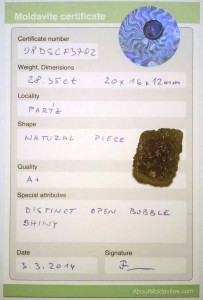 Moldavite certificate
Certificate number
08DSCF3702
Weight, Dimensions
28.35ct 20x16x12mm
Locality
PAŘÍZ
Shape
NATURAL PIECE
Quality
A+
Special attributes
DISTINCT OPEN BUBBLE
SHINY
Date
Signature
3.3.2014
AboutMoldavites.com